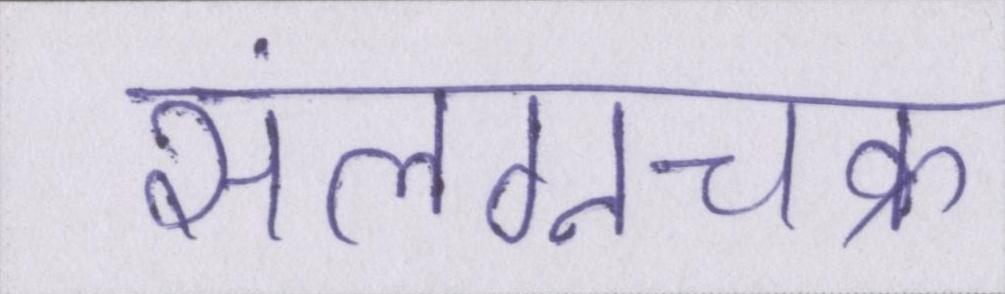 संलग्नचक्र